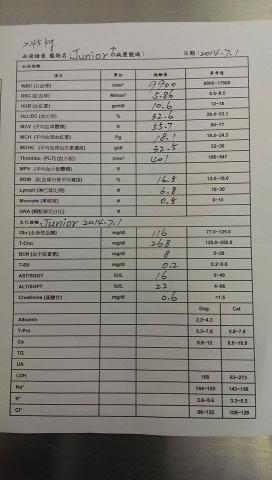 2.45 kg
血液檢查 寵物名 Junior 病歷號碼： 日期：2014.7.1
血球檢驗
項目 單位 檢驗值 參考值
WBC (白血球) /mm³ 9900 6000~17000
RBC (紅血球) M/mm³ 5.86 5.5~8.5
HGB (血紅素) gm/dl 10.6 12~18
Hct./DC (血比容) % 32.6
MCV (平均血球體積) fl 55.7 60~77
MCH (平均血球血紅素) Pg 18.1 19.5~24.5
MCHC (平均血球血色素濃度) g/dl 32.5 32~36
Thrombo (PLT) (血小板) /mm³ 401
MPV (平均血小板體積) fl
RDW (紅血球分佈平均寬度) % 16.5 12.0~18.0
Lymph (淋巴球比例) # 6.8 10~30
Monocyte (單核球) # 0.5 0~10
GRA (顆粒球百分比) #
生化檢驗 Junior 2014.7.1
Glu (全身性血糖) mg/dl 116 77.0~125.0
T-Cho mg/dl 268
BUN (血中尿素氮) mg/dl 8 5~28
T-Bil mg/dl 0.2
AST/SGOT IU/L 16 0~40
ALT/SGPT IU/L 22 4~66
Creatinine (肌酸酐) mg/dl 0.6 <1.5
Dog Cat
Albumin 2.3~4.3
T-Pro 5.3~7.8 5.8~7.8
Ca 8.8~12 8.0~10.9
TG
UA
LDH 63~273
Na⁺ 144~156 143~158
K⁺ 3.6~5.6 3.2~5.3
Cl⁻ 96~122 108~128